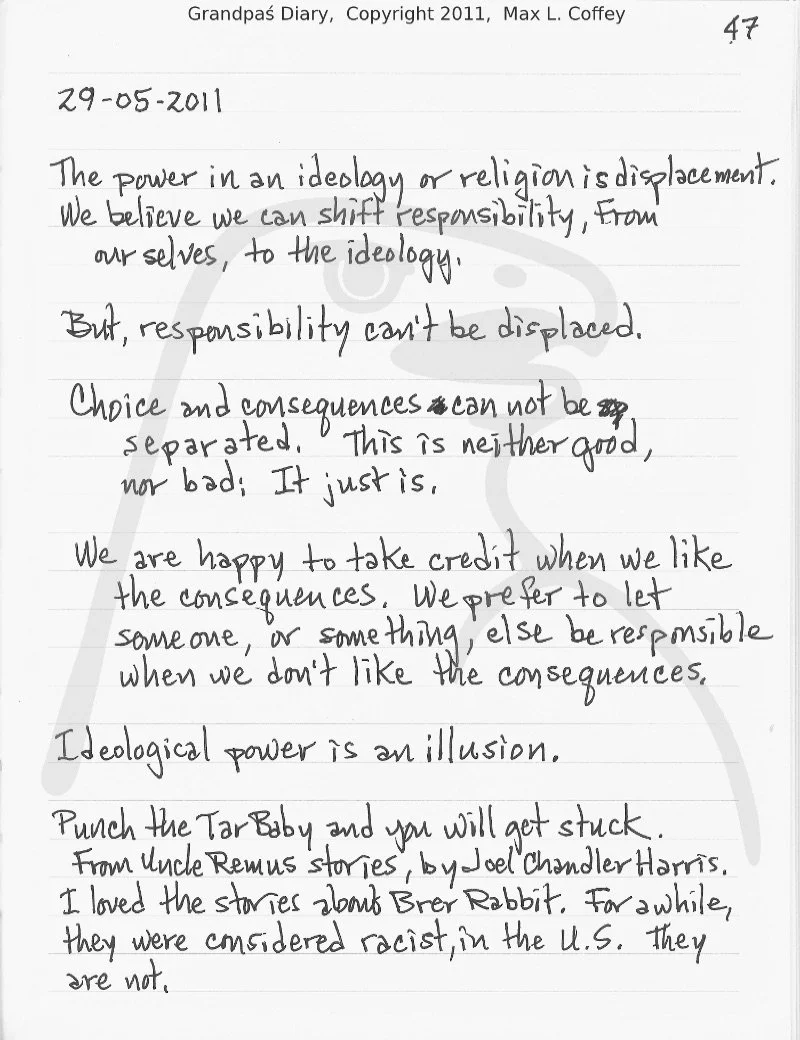 Grandpaś Diary, Copyright 2011, Max L. Coffey
47
29-05-2011
The power in an ideology or religion is displacement.
We believe we can shift responsibility, from
our selves, to the ideology.
But, responsibility can't be displaced.
Choice and consequences can not be
separated. This is neither good,
nor bad; It just is.
We are happy to take credit when we like
the consequences. We prefer to let
someone, or something, else be responsible
when we don't like the consequences.
Ideological power is an illusion.
Punch the Tar Baby and you will get stuck.
From Uncle Remus stories, by Joel Chandler Harris.
I loved the stories about Brer Rabbit. For awhile,
they were considered racist, in the U.S. They
are not.